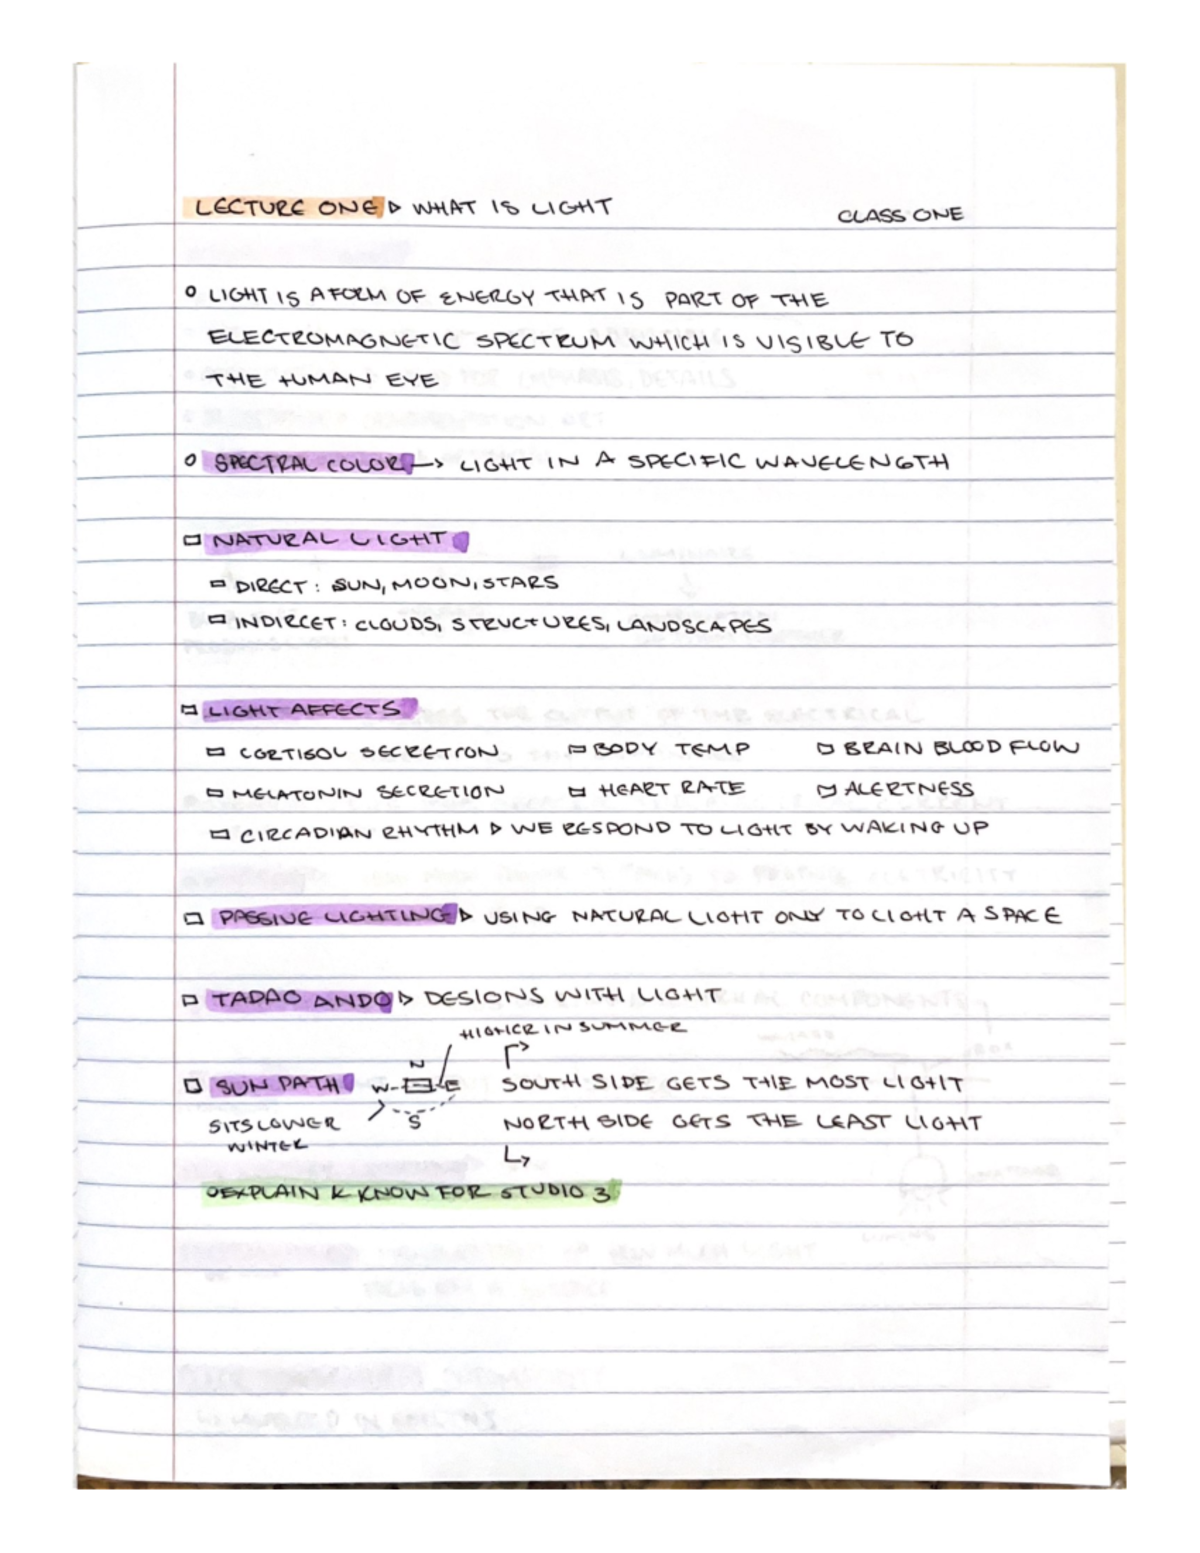 LECTURE ONE ▷ WHAT IS LIGHT
CLASS ONE
○ LIGHT IS A FORM OF ENERGY THAT IS PART OF THE
ELECTROMAGNETIC SPECTRUM WHICH IS VISIBLE TO
THE HUMAN EYE
○ SPECTRAL COLOR → LIGHT IN A SPECIFIC WAVELENGTH
□ NATURAL LIGHT
□ DIRECT: SUN, MOON, STARS
□ INDIRCET: CLOUDS, STRUCTURES, LANDSCAPES
□ LIGHT AFFECTS
□ CORTISOL SECRETION □ BODY TEMP □ BRAIN BLOOD FLOW
□ MELATONIN SECRETION □ HEART RATE □ ALERTNESS
□ CIRCADIAN RHYTHM ▷ WE RESPOND TO LIGHT BY WAKING UP
□ PASSIVE LIGHTING ▷ USING NATURAL LIGHT ONLY TO LIGHT A SPACE
□ TADAO ANDO ▷ DESIGNS WITH LIGHT
HIGHER IN SUMMER
N
□ SUN PATH W E SOUTH SIDE GETS THE MOST LIGHT
SITS LOWER S NORTH SIDE GETS THE LEAST LIGHT
WINTER
○ EXPLAIN & KNOW FOR STUDIO 3